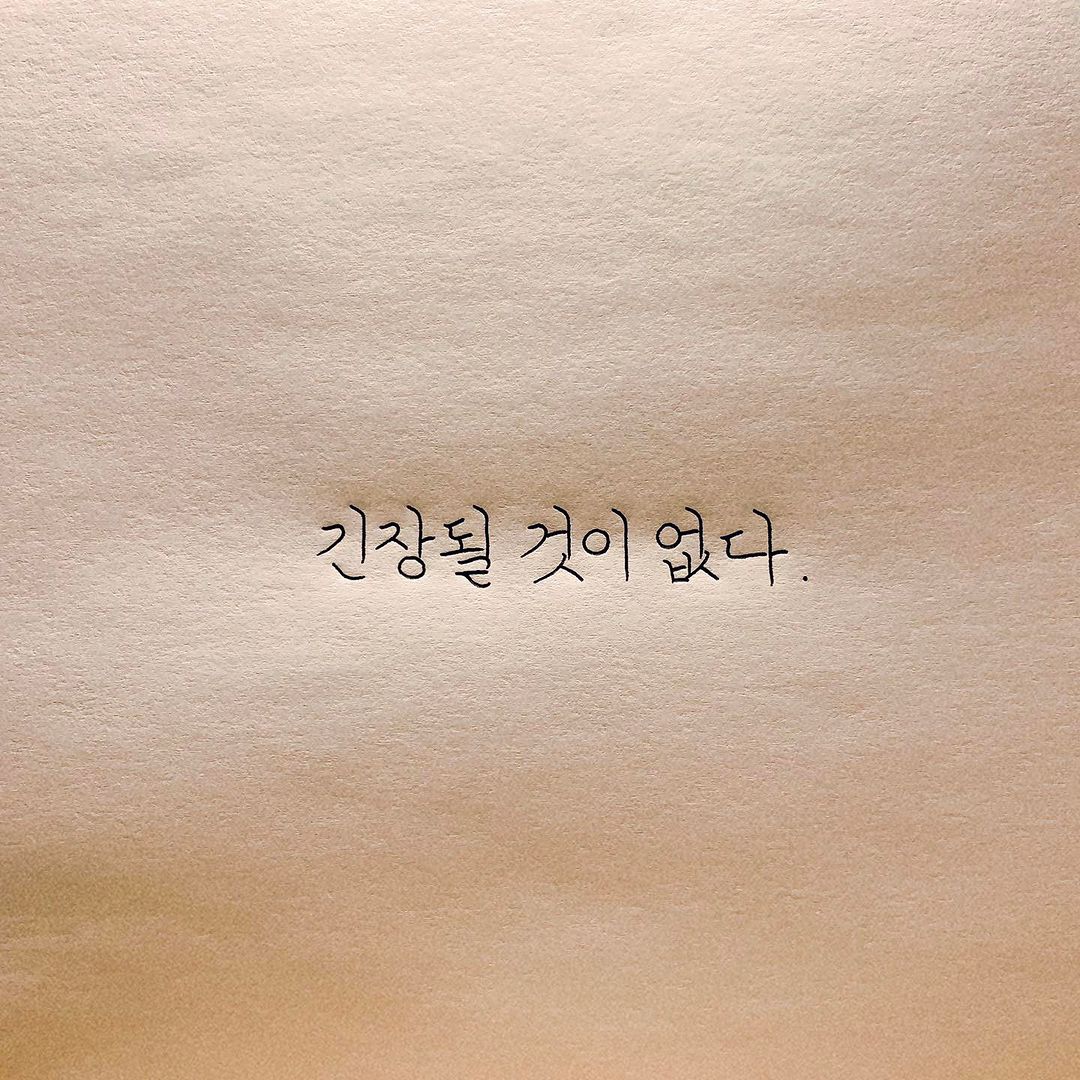 긴장될 것이 없다.